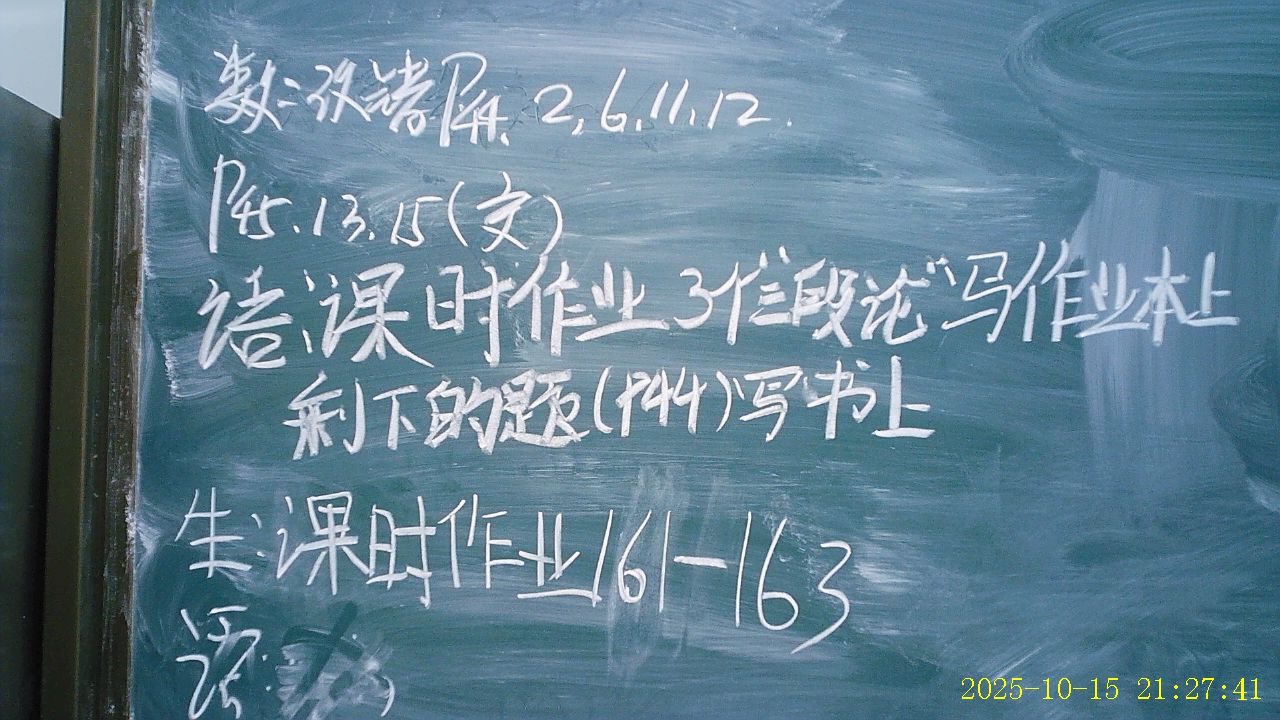 数:改错P44. 2,6,11,12.
P45.13.15(文)
语:课时作业 3个“三段论”写作业本上
剩下的题(P44)写书上
生:课时作业161-163
语:
2025-10-15 21:27:41